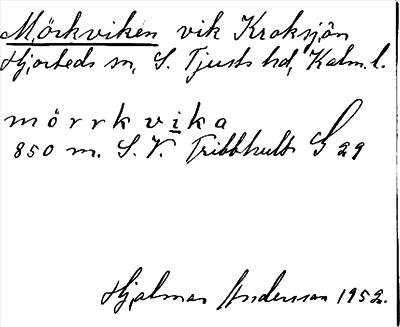 Mörkviken vik Kroksjön
Hjorteds sn, S. Tjusts hd, Kalm. l.
mörrkvika
850 m. S.V. Tribbhult G 29
Hjalmar Andersson 1952.